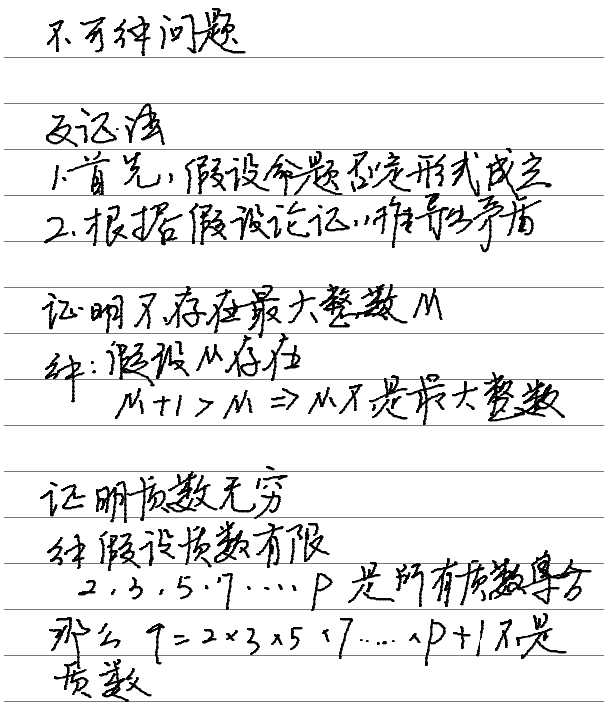 不可解问题
反证法
1.首先,假设命题否定形式成立
2.根据假设论证,推导出矛盾
证明不存在最大整数M
解:假设M存在
M+1>M⇒M不是最大整数
证明质数无穷
解 假设质数有限
2,3,5,7....P 是所有质数集合
那么 q=2×3×5×7....×P+1不是
质数